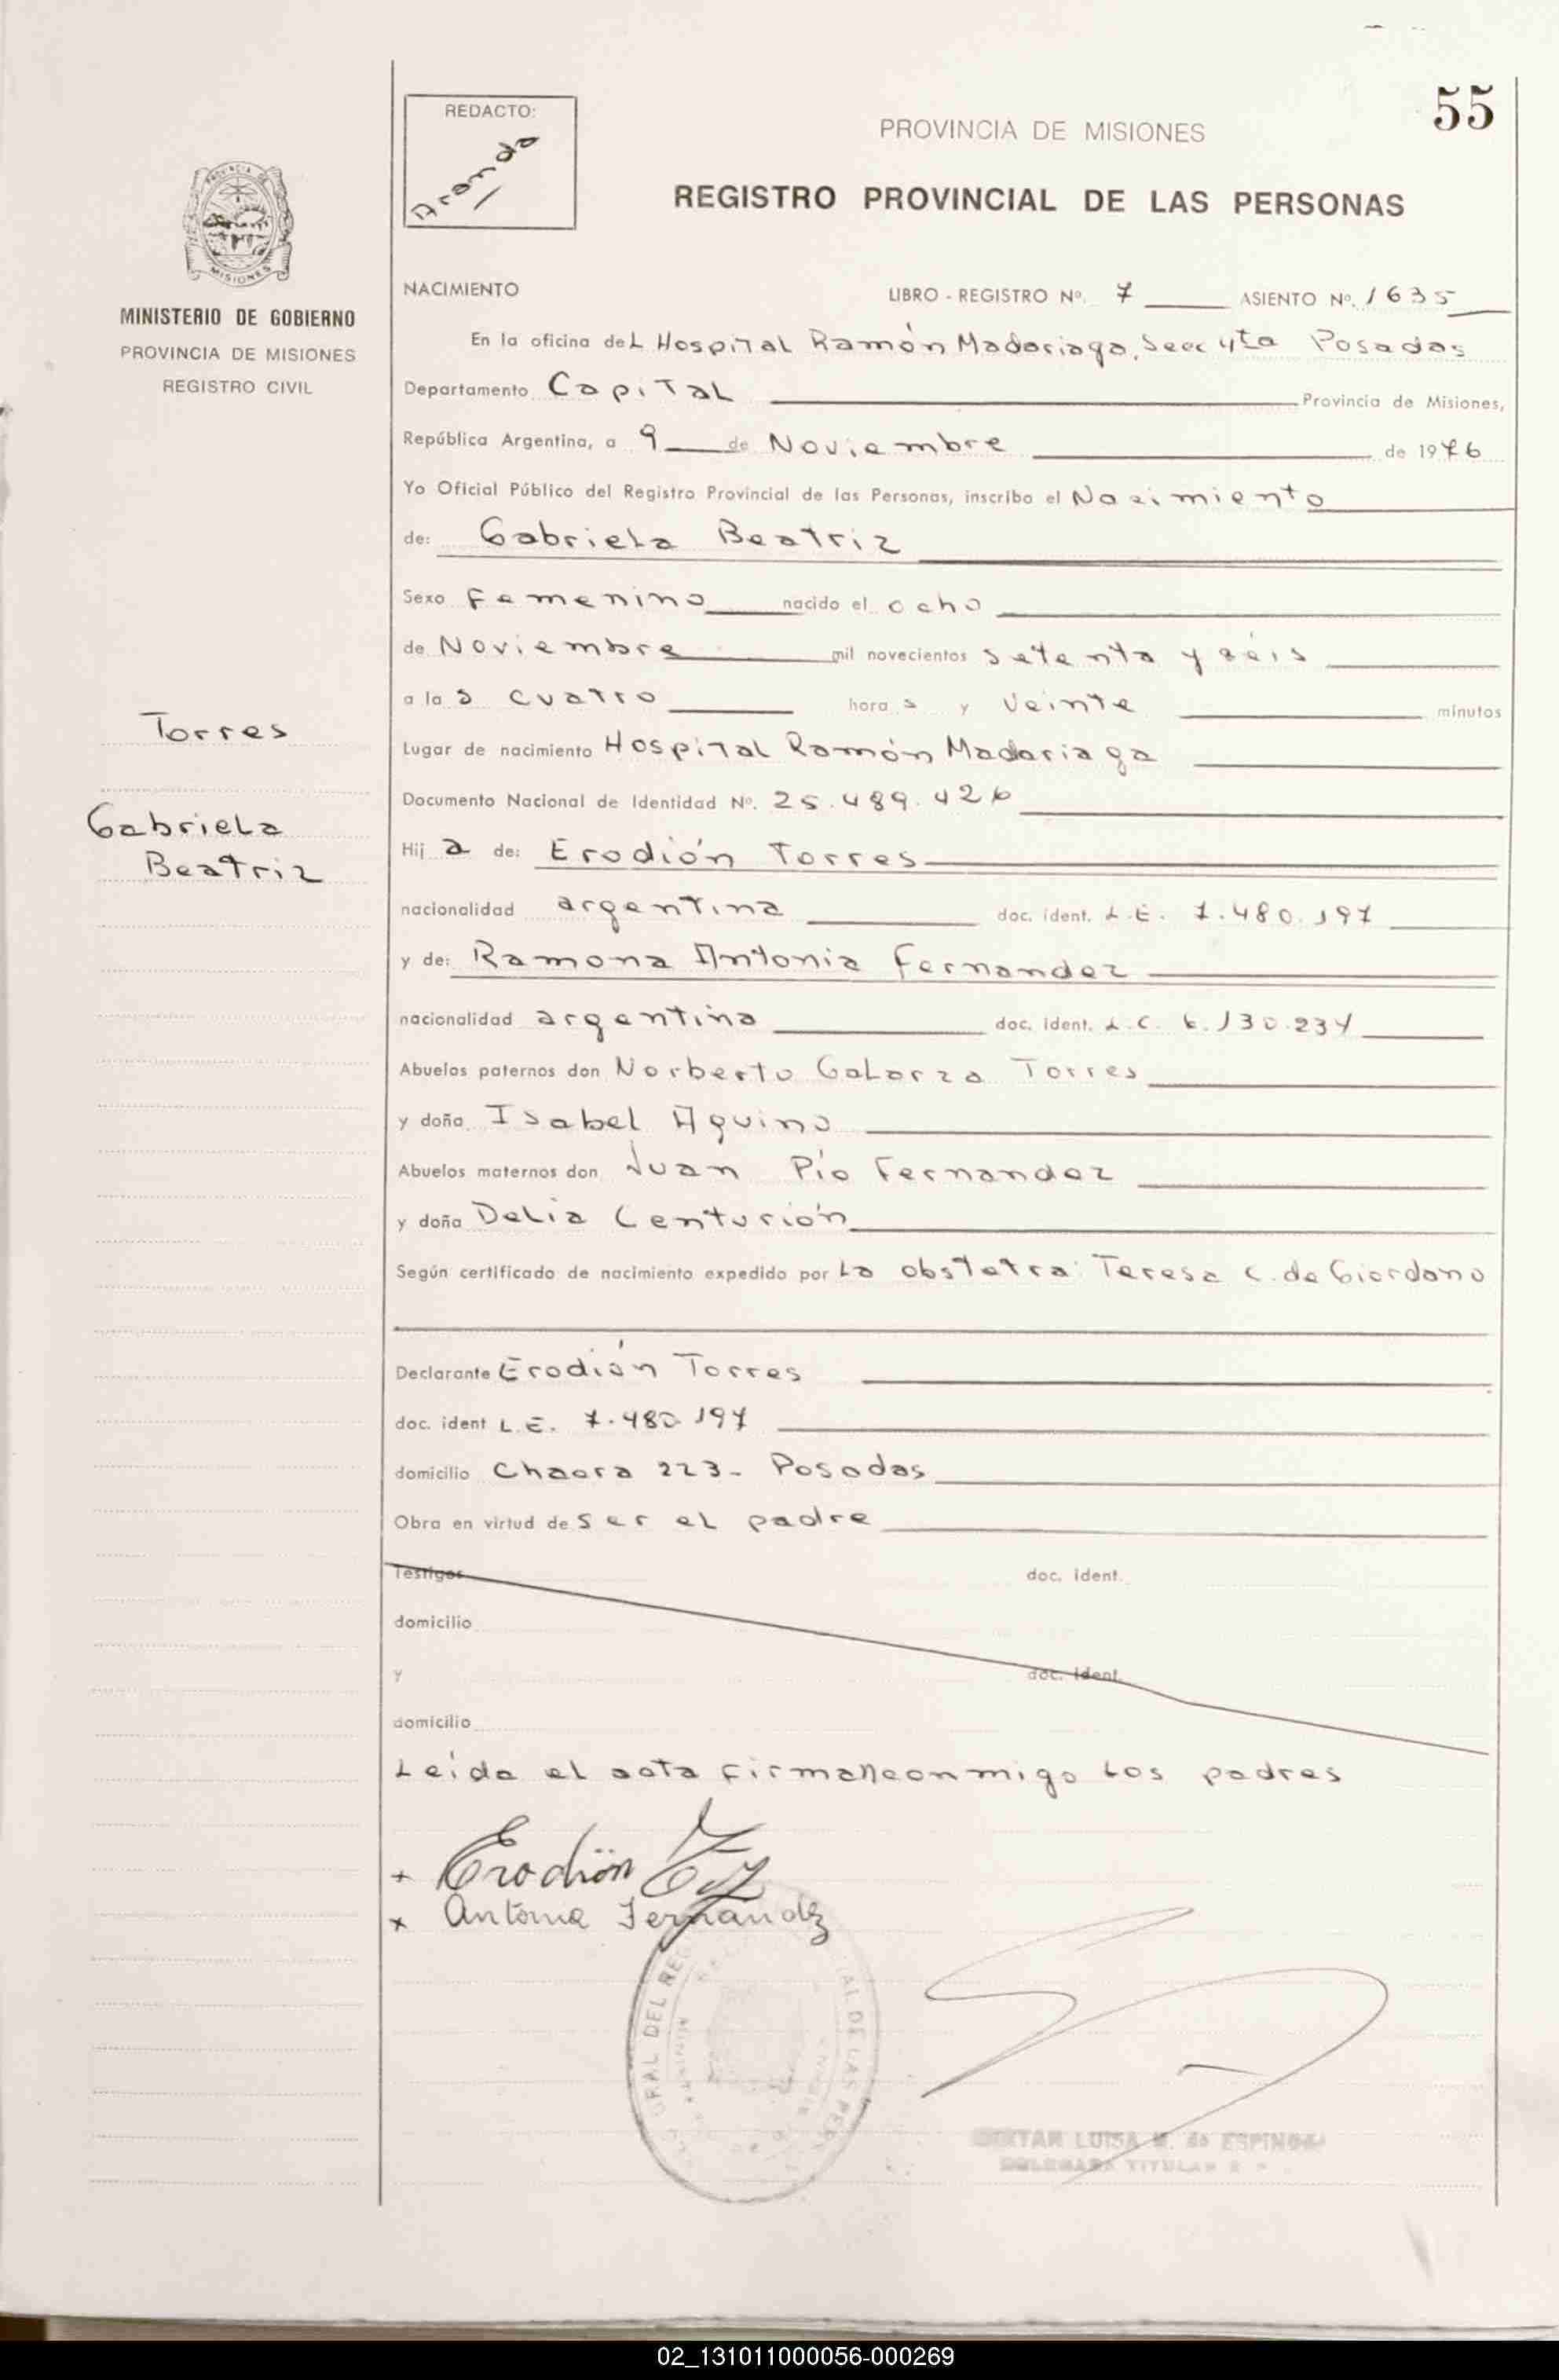 55
REDACTO:
PROVINCIA DE MISIONES
REGISTRO PROVINCIAL DE LAS PERSONAS
PROVINCIA DE
MISIONES
MINISTERIO DE GOBIERNO
PROVINCIA DE MISIONES
REGISTRO CIVIL
NACIMIENTO LIBRO - REGISTRO Nº. 7 ASIENTO Nº. 1635
En la oficina del Hospital Ramón Madariaga, Secc 4ta Posadas
Departamento Capital Provincia de Misiones,
República Argentina, a 9 de Noviembre de 1976
Yo Oficial Público del Registro Provincial de las Personas, inscribo el Nacimiento
de: Gabriela Beatriz
Sexo femenino nacido el ocho
de Noviembre mil novecientos setenta y séis
a las cuatro horas y veinte minutos
Torres
Lugar de nacimiento Hospital Ramón Madariaga
Documento Nacional de Identidad Nº. 25.489.426
Gabriela
Beatriz
Hija de: Erodión Torres
nacionalidad argentina doc. ident. L.E. 7.480.197
y de: Ramona Antonia Fernandez
nacionalidad argentina doc. ident. L.C. 6.130.234
Abuelos paternos don Norberto Galarza Torres
y doña Isabel Aquino
Abuelos maternos don Juan Pío Fernandez
y doña Delia Centurión
Según certificado de nacimiento expedido por la obstetra: Teresa C. de Giordano
Declarante Erodión Torres
doc. ident L.E. 7.480.197
domicilio Chacra 223- Posadas
Obra en virtud de ser el padre
Testigos doc. ident.
domicilio
y doc. ident.
domicilio
Leída el acta firman conmigo los padres
+ Erodión
x Antonia Fernandez
RAL DEL REG AL DE LAS PER
LUISA M. de ESPINOSA
TITULAR
02_131011000056-000269